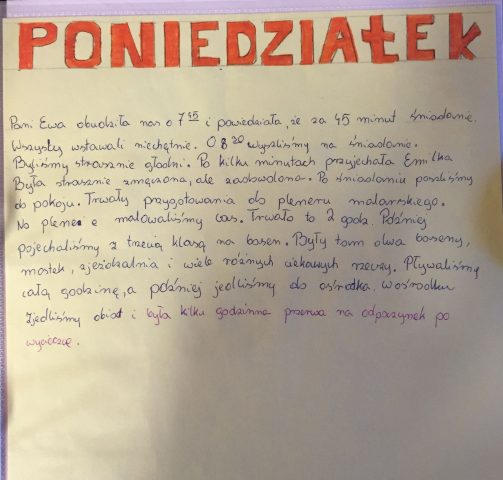 PONIEDZIAŁEK
Pani Ewa obudziła nas o 7 45 i powiedziała, że za 45 minut śniadanie.
Wszyscy wstawali niechętnie. O 8 20 wyszliśmy na śniadanie.
Byliśmy strasznie głodni. Po kilku minutach przyjechała Emilka
Była strasznie zmęczona, ale zadowolona. Po śniadaniu poszliśmy
do pokoju. Trwały przygotowania do pleneru malarskiego.
Na plenerze malowaliśmy las. Trwało to 2 godz. Później
pojechaliśmy z trzecią klasą na basen. Były tam dwa baseny,
mostek, zjeżdżalnia i wiele różnych ciekawych rzeczy. Pływaliśmy
całą godzinę, a później jedliśmy do ośrodka. W ośrodku
zjedliśmy obiad i była kilku godzinna przerwa na odpoczynek po
wycieczce.